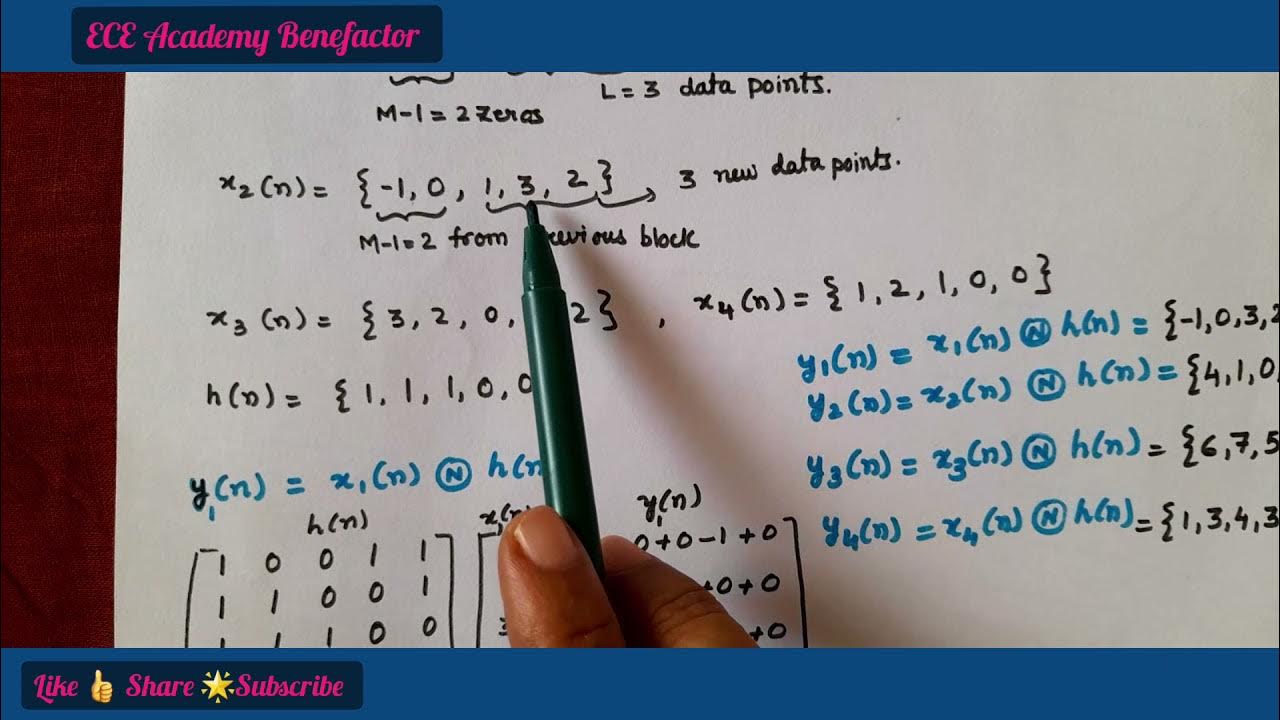 ECE Academy Benefactor
L = 3 data points.
M-1 = 2 zeros
x₂(n) = {-1, 0, 1, 3, 2} 3 new data points.
M-1=2 from previous block
x₃(n) = {3, 2, 0, 2} , x₄(n) = {1, 2, 1, 0, 0}
h(n) = {1, 1, 1, 0, 0
y₁(n) = x₁(n) Ⓝ h(n) = {-1, 0, 3, 2
y₂(n) = x₂(n) Ⓝ h(n) = {4, 1, 0,
y₃(n) = x₃(n) Ⓝ h(n) = {6, 7, 5
y₄(n) = x₄(n) Ⓝ h(n) = {1, 3, 4, 3
y₁(n) = x₁(n) Ⓝ h(n
h(n) x₁(n) y₁(n)
1 0 0 1 1 0+0-1+0
1 1 0 0 1 +0+0
1 1 1 0 0 3 +0
Like 👍 Share 🌟Subscribe